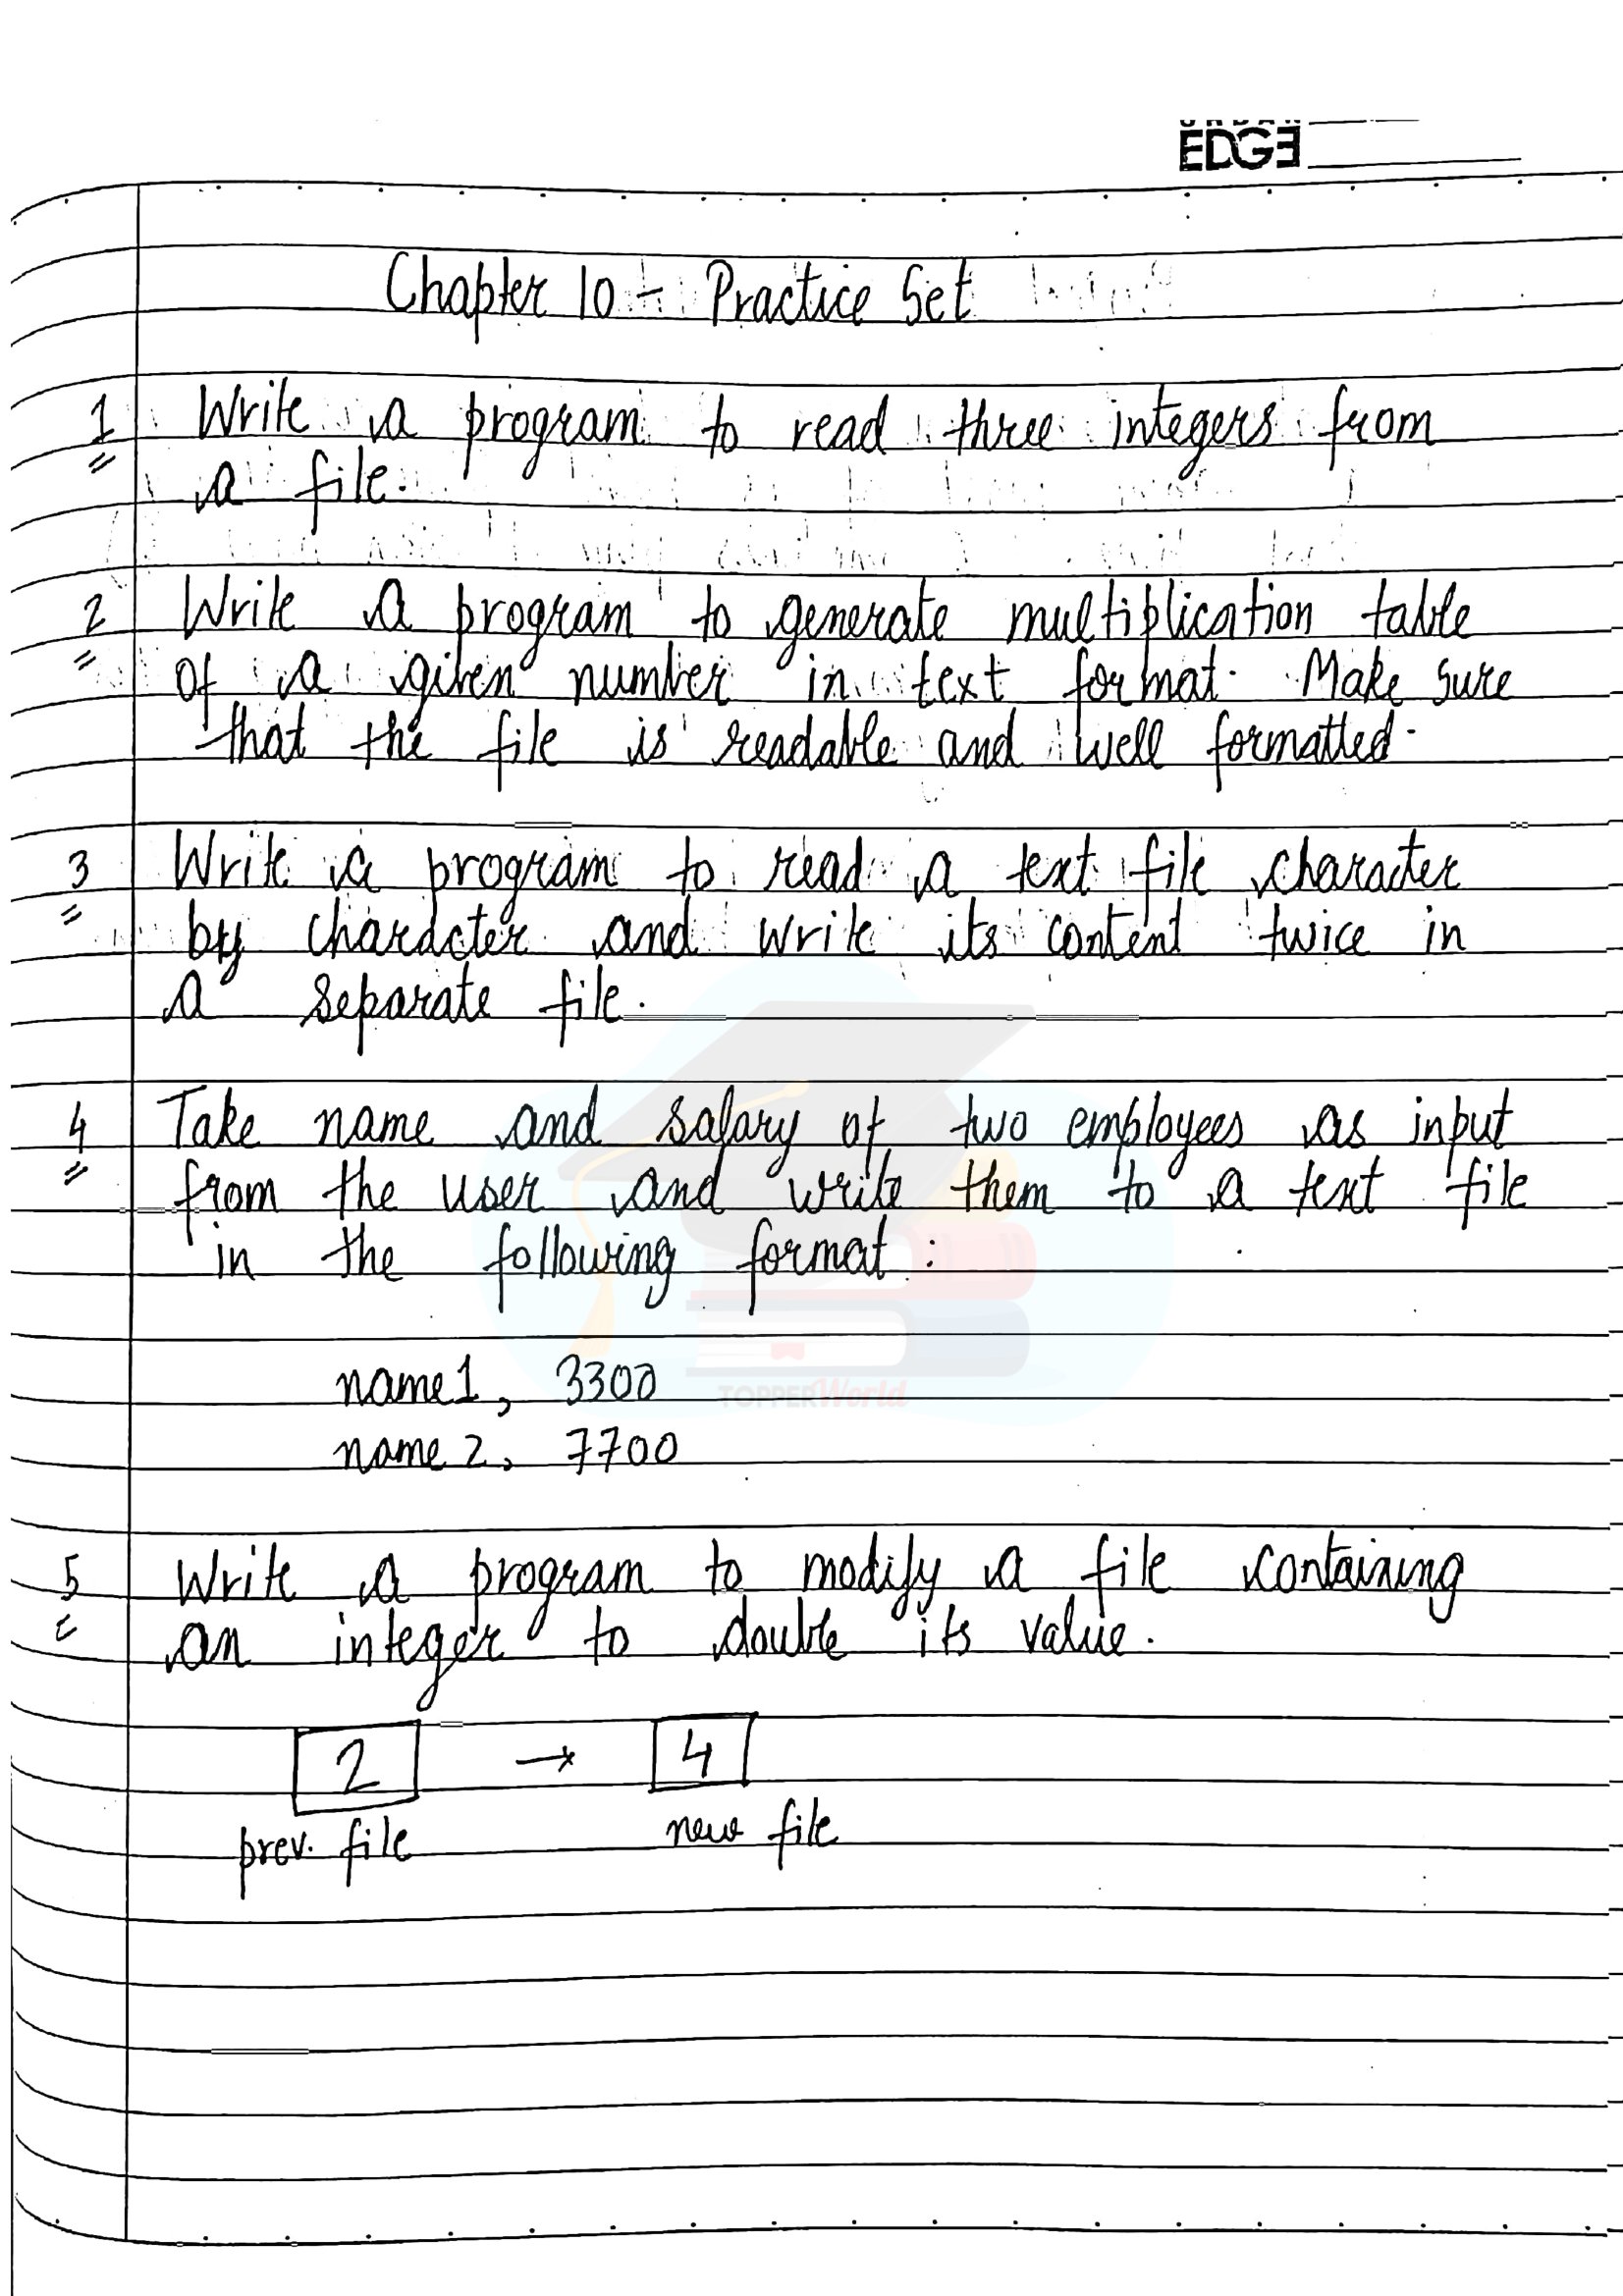 EDGE
Chapter 10 - Practice Set
1 Write a program to read three integers from
a file.
2 Write a program to generate multiplication table
of a given number in text format. Make sure
that the file is readable and well formatted.
3 Write a program to read a text file character
by character and write its content twice in
a separate file.
4 Take name and salary of two employees as input
from the user and write them to a text file
in the following format :
name1, 3300
TOPPERWorld
name2, 7700
5 Write a program to modify a file containing
an integer to double its value.
2 → 4
prev. file new file